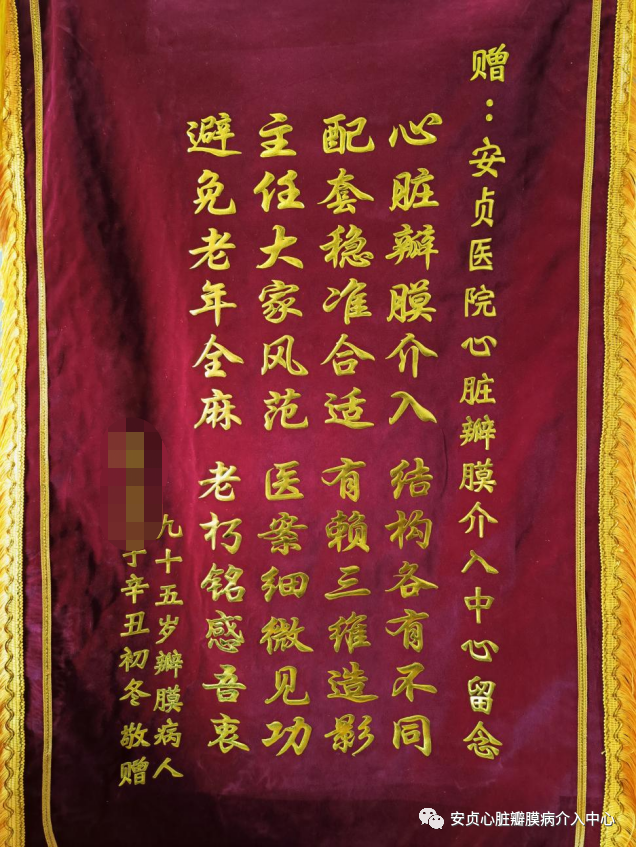 赠：安贞医院心脏瓣膜介入中心留念
心脏瓣膜介入 结构各有不同
配套稳准合适 有赖三维造影
主任大家风范 医案细微见功
避免老年全麻 老朽铭感吾衷
九十五岁瓣膜病人
于辛丑初冬敬赠
安贞心脏瓣膜病介入中心